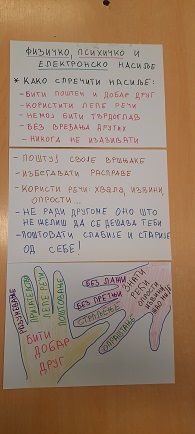 ФИЗИЧКО, ПСИХИЧКО И
ЕЛЕКТРОНСКО НАСИЉЕ
* КАКО СПРЕЧИТИ НАСИЉЕ:
- БИТИ ПОШТЕН И ДОБАР ДРУГ
- КОРИСТИТИ ЛЕПЕ РЕЧИ
- НЕМОЈ БИТИ ТВРДОГЛАВ
- БЕЗ ВРЕЂАЊА ДРУГИХ
- НИКОГА НЕ ИЗАЗИВАТИ
- ПОШТУЈ СВОЈЕ ВРШЊАКЕ
- ИЗБЕГАВАТИ РАСПРАВЕ
- КОРИСТИ РЕЧИ: ХВАЛА, ИЗВИНИ,
ОПРОСТИ...
- НЕ РАДИ ДРУГОМЕ ОНО ШТО
НЕ ЖЕЛИШ ДА СЕ ДЕШАВА ТЕБИ
- ПОШТОВАТИ СЛАБИЈЕ И СТАРИЈЕ
ОД СЕБЕ!
ПРИЈАТЕЉСТВО
ЛЕПЕ РЕЧИ
ПОШТОВАЊЕ
БИТИ
ДОБАР
ДРУГ
БЕЗ ЛАЖИ
БЕЗ ПРЕТЊИ
СТРПЉЕЊЕ
ЗНАТИ
РЕЋИ
ОПРОСТИ
ИЗВИНИ